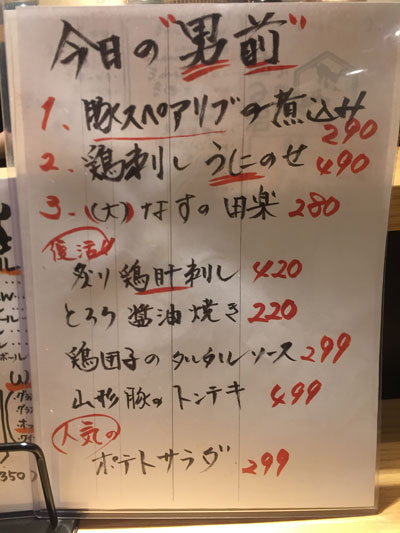 今日の"男前"
1. 豚スペアリブの煮込み 290
2. 鶏刺し うにのせ 490
3. (大)なすの田楽 280
復活!!
炙り鶏肝刺し 420
とろろ醤油焼き 220
鶏団子のタルタルソース 299
山形豚のトンテキ 499
人気の
ポテトサラダ 299
350)